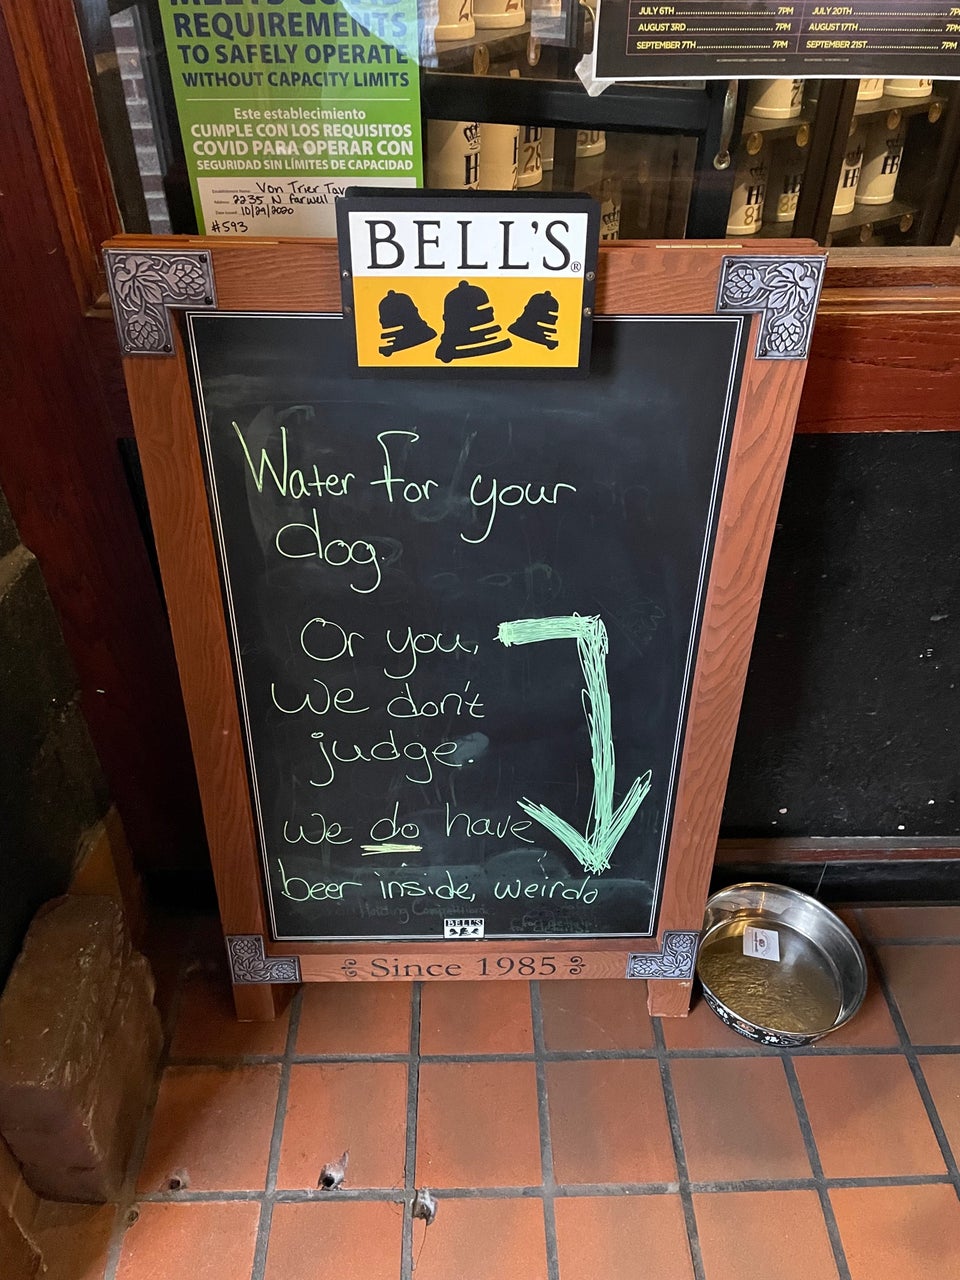 REQUIREMENTS
TO SAFELY OPERATE
WITHOUT CAPACITY LIMITS
Este establecimiento
CUMPLE CON LOS REQUISITOS
COVID PARA OPERAR CON
SEGURIDAD SIN LÍMITES DE CAPACIDAD
Von Trier
2235 N Farwell
10/29/2020
#593
JULY 6TH 7PM
AUGUST 3RD 7PM
SEPTEMBER 7TH 7PM
JULY 20TH 7PM
AUGUST 17TH 7PM
SEPTEMBER 21ST 7PM
BELL'S®
Water for your
dog.
Or you,
we don't
judge.
We do have
beer inside, weirdo
BELL'S
Since 1985